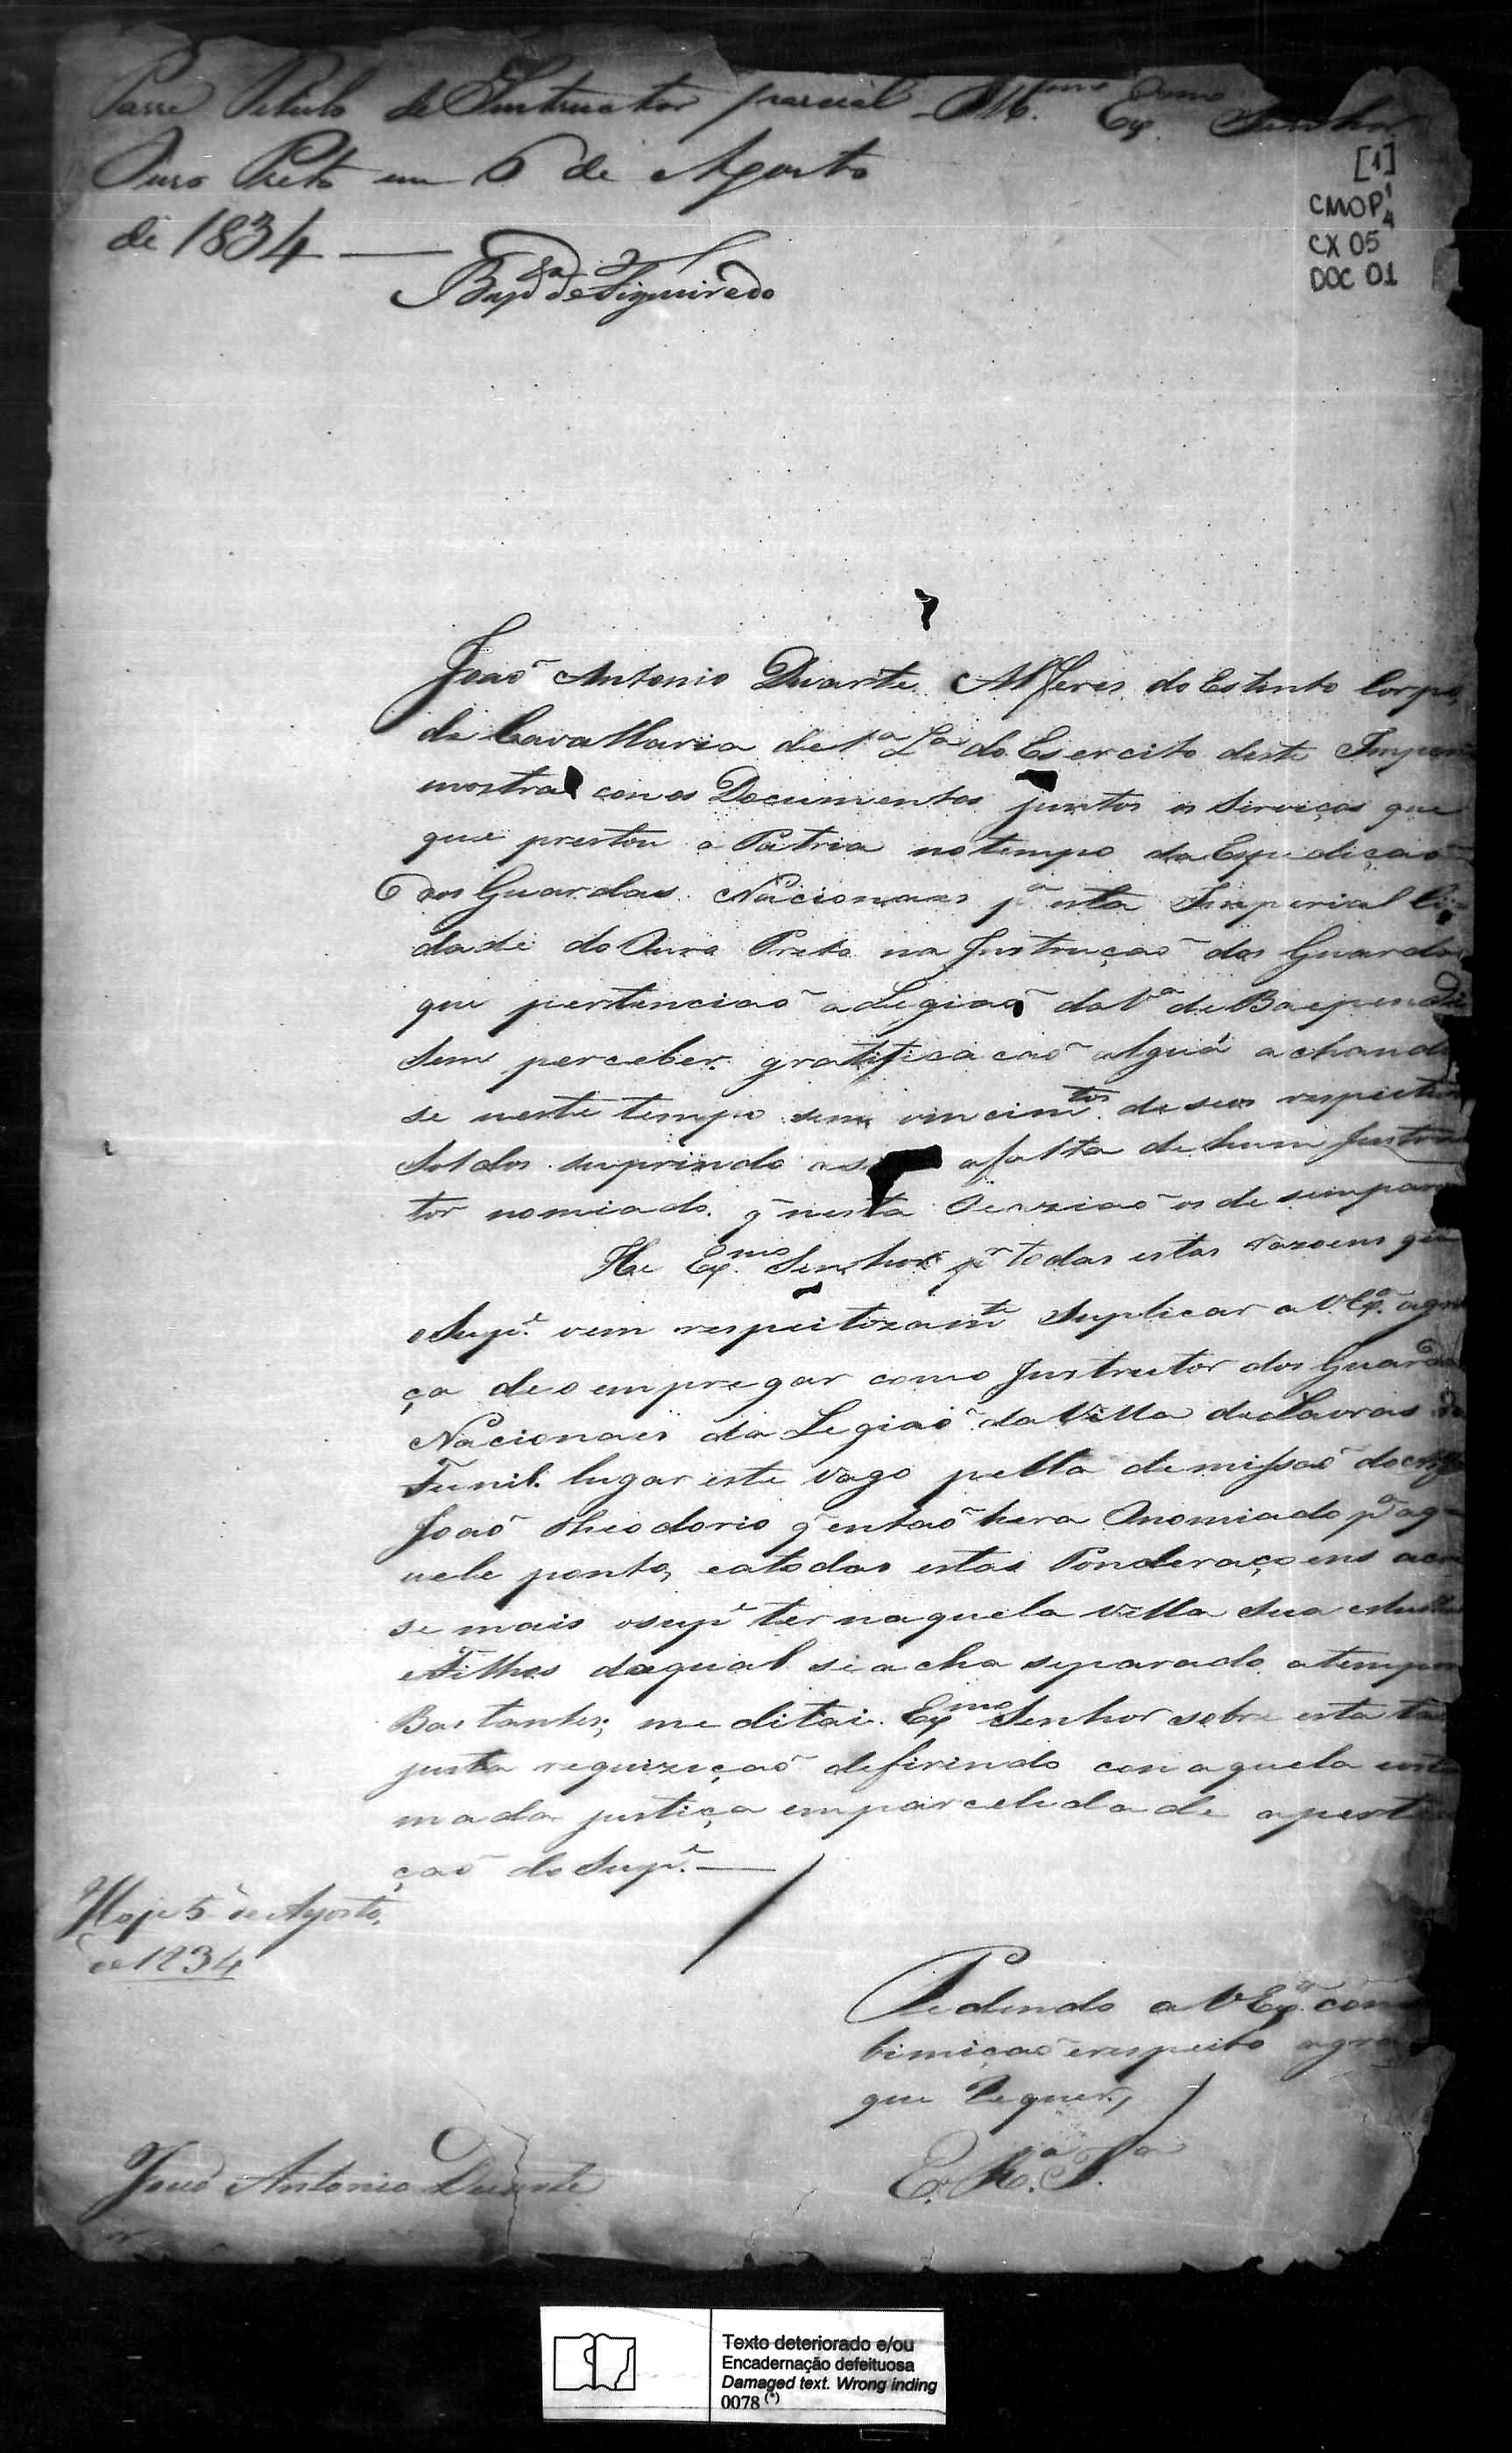 Passe Titulo de Instructor parcial Illmo. Exmo. Senhor
Ouro Preto em 6 de Agosto
de 1834 —
de Figueiredo
[1]
CMOP 1/4
CX 05
DOC 01
Joaõ Antonio Duarte Alferes do Estinto Corpo
de Cavallaria de 1ª La do Esercito deste Imperi
mostra con os Documentos juntos os Serviços que
que prestou a Patria no tempo da Espediçaõ
dos Guardas Nacionaes pª esta Imperial Ci
dade do Ouro Preto na Instruçaõ dos Guardas
que pertenciaõ a Legiaõ da Vª de Baependi
sem perceber gratificacaõ alguã achando
se neste tempo sem vencimtos de seos respectivos
Soldos suprindo a falta de hum Instru
tor nomiado q̃ nesta Ocaziaõ os desempar
He Exmo. Senhor pr todas estas razoens que
o Supe. vem respeitozamte Suplicar a V. Exª. a gra
ça de o empregar como Instrutor dos Guardas
Nacionaes da Legiaõ da Villa de Lavras do
Funil lugar este vago pella demissaõ do
Joaõ Theodorio q̃ entaõ hera O nomiado pª aq
uele ponto, e a todas estas Ponderaçoens acre
se mais o supe ter naquela villa sua
e Filhos da qual se acha separado a tempos
Bastantes; meditai Exmo Senhor sobre esta ta
justa requiziçaõ defirindo con aquela costu
mada justiça emparcelidade a perti
çaõ do Supe. —
Hoje 5 de Agosto
de 1834
Pedindo a V Exª. com
bimiçaõ e respeito a gra
que Requer,
E. R. Ma
Joaõ Antonio Duarte
Texto deteriorado e/ou
Encadernação defeituosa
Damaged text. Wrong inding
0078 (*)